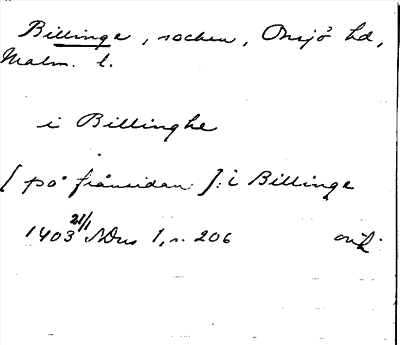 Billinge, socken, Onsjö hd,
Malm. l.
i Billinghe
[på frånsidan]: i Billinge
1403 21/1 NDns 1, s. 206 avh